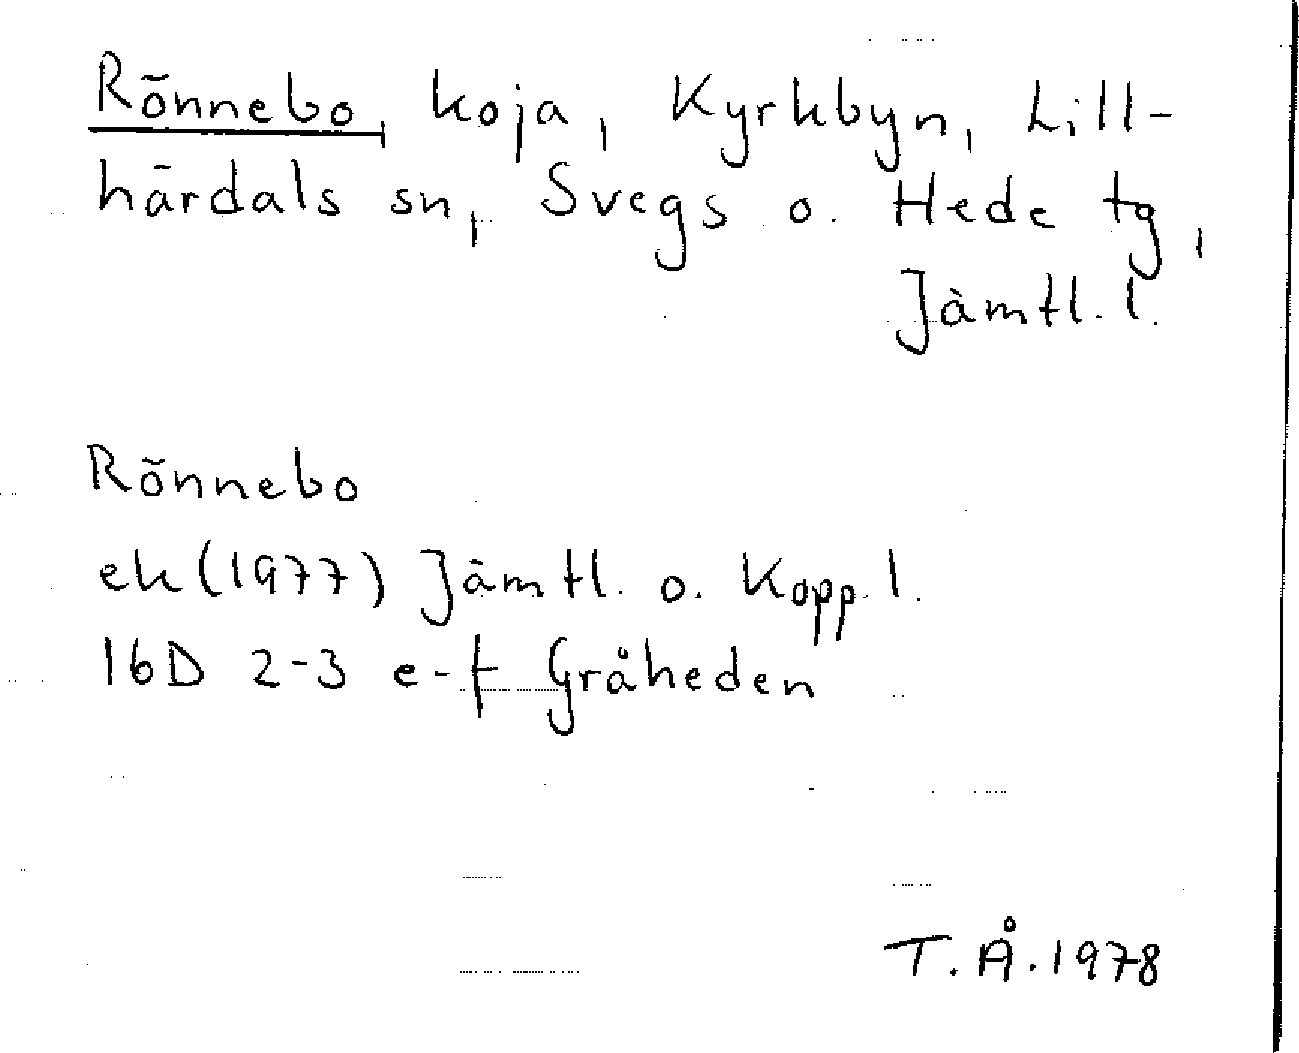 Rönnebo, koja, Kyrkbyn, Lill-
härdals sn, Svegs o. Hede tg,
Jämtl. l.
Rönnebo
ek (1977) Jämtl. o. Kopp. l.
16D 2-3 e-f Gråheden
T. Å. 1978